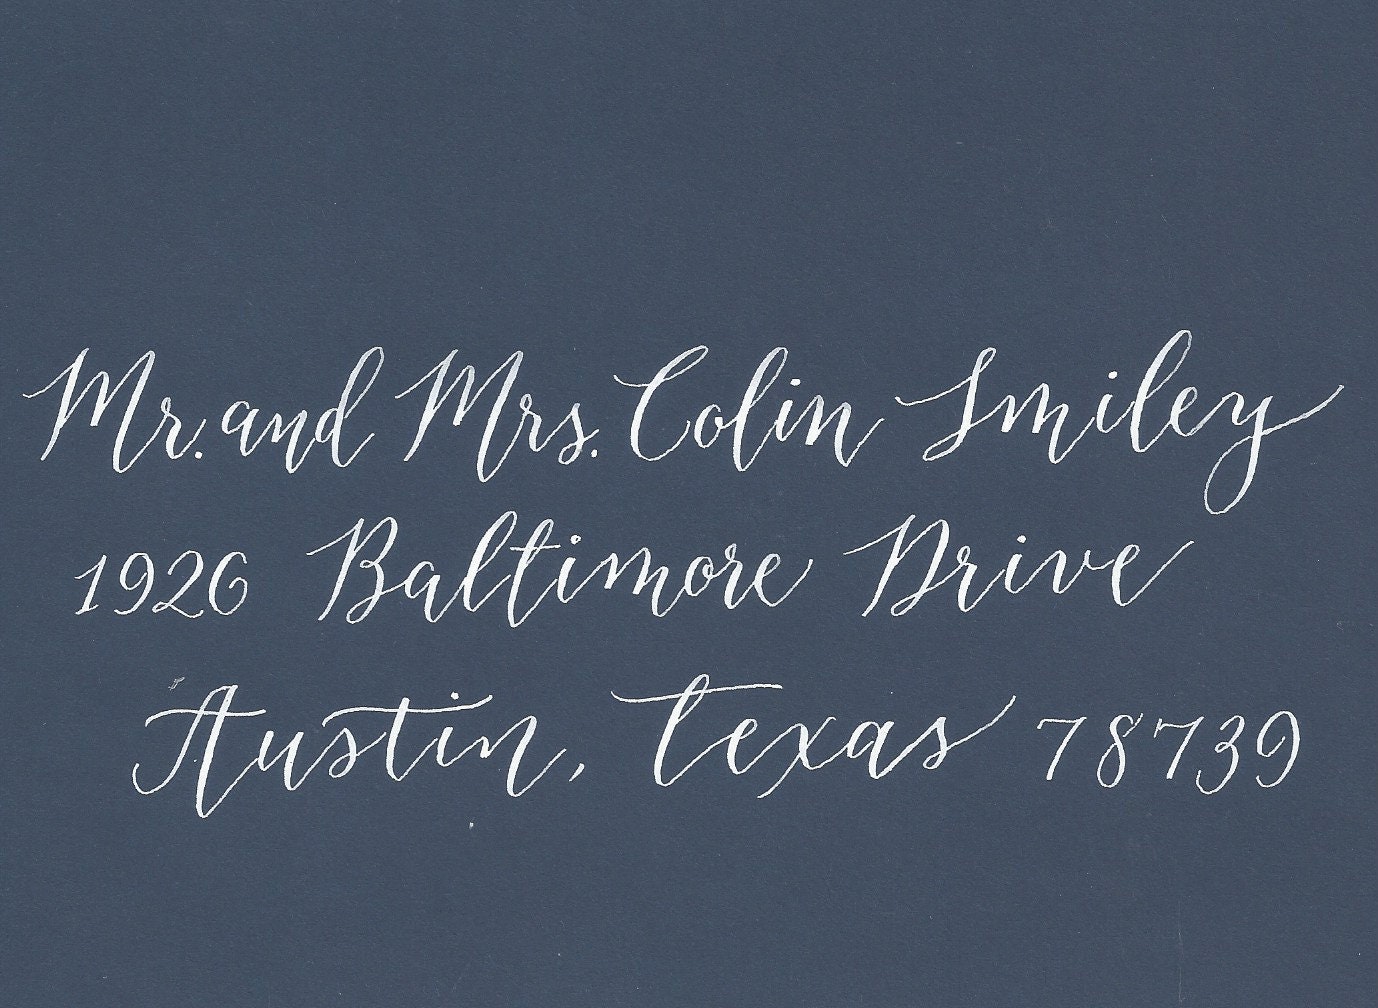 Mr. and Mrs. Colin Smiley
1926 Baltimore Drive
Austin, Texas 78739